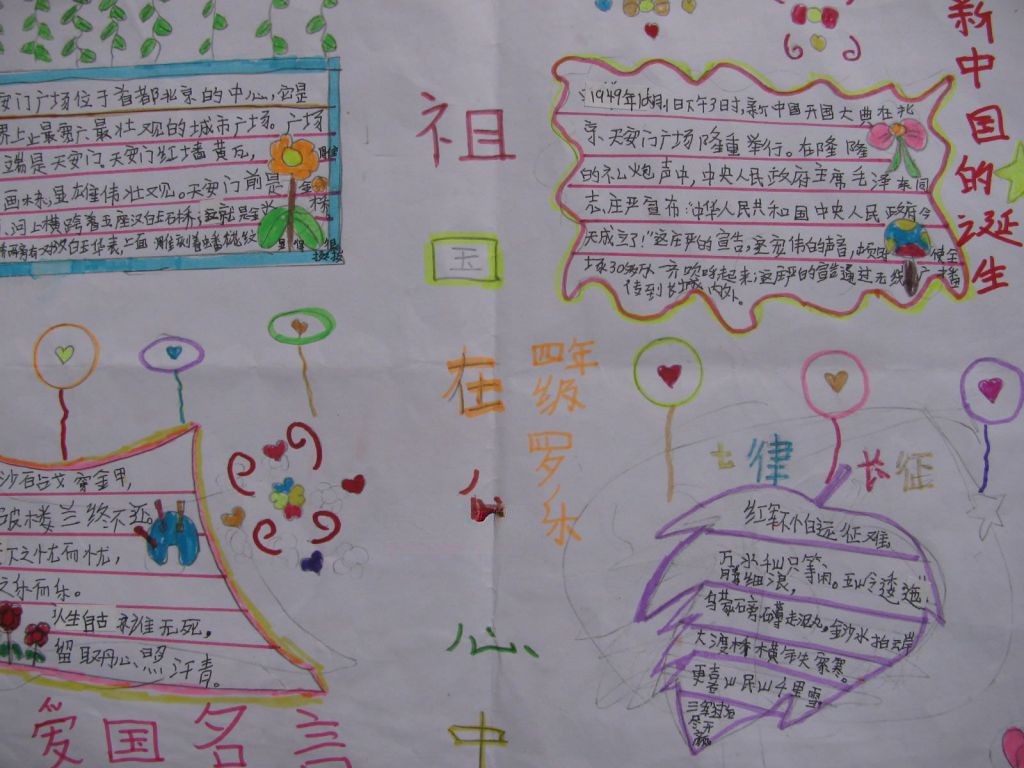 安门广场位于首都北京的中心,它是
界上最宽广、最壮观的城市广场。广场
端是天安门。天安门红墙黄瓦,
画栋,显雄伟壮观。天安门前是
河,河上横跨着五座汉白玉石桥,这就是
祖
国
在
我
心
中
四年级 罗乐
新中国的诞生
1949年10月1日下午3时,新中国开国大典在北
京天安门广场隆重举行。在隆隆
的礼炮声中,中央人民政府主席毛泽东同
志,庄严宣布:"中华人民共和国中央人民政府今
天成立了!"这庄严的宣告,这宏伟的声音,
场30万人一齐欢呼起来;这庄严的宣告通过无线广播
传到长城内外。
沙百战穿金甲,
破楼兰终不还。
天下之忧而忧,
之乐而乐。
人生自古谁无死,
留取丹心照汗青。
爱国名言
七律 长征
红军不怕远征难
万水千山只等闲。五岭逶迤
腾细浪,
乌蒙磅礴走泥丸。金沙水拍云岸
大渡桥横铁索寒。
更喜岷山千里雪
三军过后
尽开
颜